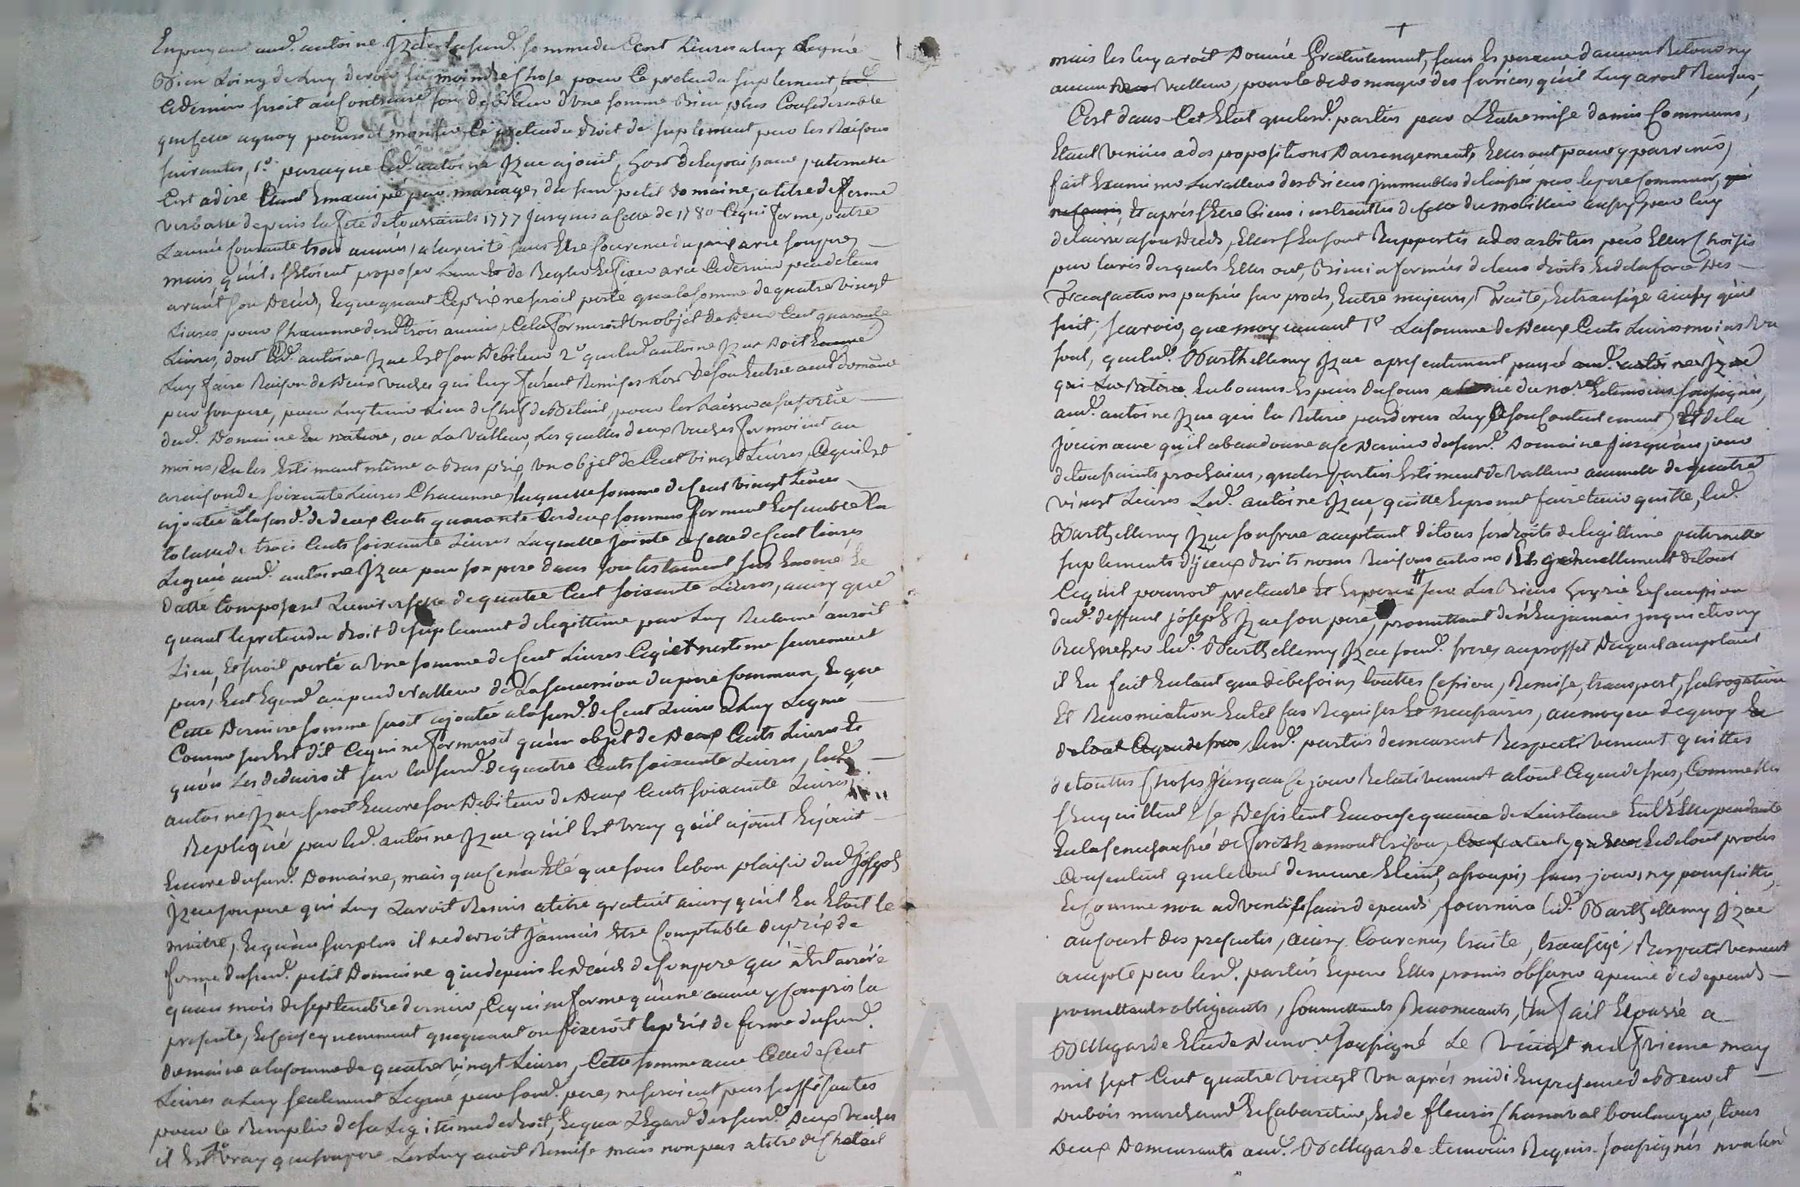 En payant aud. antoine Jzac lasusd. somme de Cent Livres a luy Leguée
Bien Loing de luy devoir la moindre chose pour Ce pretendu suplement
Ce dernier seroit au Contraire son debiteur d'une somme Bien plus Considerable
que Celle a quoy pourroit monter Ce pretendu droit de suplement par les Raisons
suivantes, 1°. parce que led. antoine Jzac a joui, hors de la puissance paternelle
C'est a dire Emancipé par mariage, du susd. petit domaine, a titre de ferme
verballe depuis la fete de toussaints 1777 jusques a celle de 1780 Ce qui forme, outre
L'année Courante trois années, a la verité sans Etre Convenu du prix avec son pere
mais qu'ils s'Etoient proposés de Regler Et fixer avec Ce dernier peu de tems
avant son Decéds, Et que quant Ce prix ne seroit porté qu'a la somme de quatre vingt
Livres pour Chacunne desd. trois années, Cela formeroit un objet de Deux Cent quarante
Livres, dont led. antoine Jzac Est son Debiteur 2° que led. antoine Jzac Doit
Luy faire Raison de Deux vaches qui luy furent Remises Lors de son Entrée aud. domaine
par son pere, pour luy tenir Lieu de Chef de Betail, pour les Laisser a sa sortie
dud. Domaine En nature, ou La valleur, Les quelles deux vaches formoint au
moins, En les Estimant même a bas prix, un objet de Cent vingt Livres, Ce qui Est
a raison de soixante Livres Chacunne, laquelle somme de Cent vingt Livres
ajoutée a la susd. de deux Cents quarante Les deux sommes forment Ensemble La
totalle de trois Cents soixante Livres Laquelle jointe a celle de Cent Livres
Leguée aud. antoine Jzac par son pere dans son testament sus Enoncé Et
datté Composent L'universelle de quatre Cent soixante Livres, ainsy que
quant le pretendu droit de suplement de legittime par Luy Reclamé auroit
Lieu, Et seroit porté a une somme de Cent Livres Ce qui n'est même seurement
pas, Eut Egard au peu de valleur de La succession du pere Commun, Et que
Cette Derniere somme seroit ajoutée a la susd. de Cent Livres a Luy Leguée
Comme sus Est dit Ce qui ne formeroit qu'un objet de Deux Cents Livres Et
qu'on Les deduiroit sur la susd. de quatre Cents soixante Livres, led.
antoine Jzac seroit Encore son Debiteur de Deux Cents soixante Livres.
Repliqué par led. antoine Jzac qu'il Est vray qu'il a joui Et jouit
Encore dususd. Domaine, mais que Ce n'a Eté que sous le bon plaisir dud. Joseph
Jzac son pere qui Luy L'avoit Remis a titre gratuit ainsy qu'il En Etoit le
maitre, Et qu'au surplus il ne devroit Jamais Etre Comptable du prix de
ferme dusd. petit Domaine que depuis le decéds de son pere qui n'Est arrivé
qu'au mois de septembre dernier, Ce qui ne forme qu'une année y Compris la
presente, Et Consequemment que quant on fixeroit le prix de ferme dusd.
domaine a la somme de quatre vingt Livres, Cette somme avec Celle de Cent
Livres a Luy seulement Leguée par sond. pere, ne seroient pas suffisantes
pour le Remplir de sa Legittime de droit, Et qu'a L'Egard desusd. Deux vaches
il Est vray que son pere Les Luy avoit Remise mais non pas a titre de Chetail
+
mais les luy avoit Donnée Gratuitement, sans Esperance d'aucun Retour ny
aucunne valleur, pour le dedomager des services qu'il luy avoit Rendus,
C'est dans Cet Etat que lesd. parties par L'Entremise d'amis Communs,
Etant venues a des propositions D'arrangement, Elles ont pour y parvenir,
fait Examiner La valleur des Biens Jmmeubles delaissés par le pere Commun,
Et aprés s'Etre Bien instruittes de Celle du mobilier aussy par luy
delaissé a son Decéds, Elles s'En sont Rapportés a des arbitres par Elles Choisis
par lavis desquels Elles ont, Bien informées de leurs droits Et de la force Des
Transactions passées sur procés, Entre majeurs, Traité, Et transigé ainsy qu'il
suit, scavoir, que moyennant 1° La somme de Deux Cents Livres moins un
sout, que led. Barthellemy Jzac a presentement payé
qui En Especes du Cours Et temoins soussignés,
aud. antoine Jzac qui la Retiré pardevers Luy a son Contentement, Et de la
jouissance qu'il abandonne a Ce Dernier dusd. Domaine Jusqu'au jour
de toussaints prochains, que les parties Estiment de valleur de quatre
vingt Livres Led. antoine Jzac, quitte Et promet faire tenir quitte, led.
Barthellemy Jzac son frere acceptant de tous ses droits de legittime paternelle
suplements d'jceux droits noms Raisons actions Et generallement de tout
Ce qu'il pourroit pretendre Et Esperer sur Les Biens hoyrie Et succession
dud. deffunt Joseph Jzac son pere, promettant de n'En jamais jnquietter ny
Rechercher led. Barthellemy Jzac sond. frere au proffit Duquel acceptant
il En fait En tant que de besoin, touttes Cession, Remise, transport, subrogation
Et Renonciation En tel Cas Requises Et necessaires, au moyen de quoy
lesd. parties demeurent Respectivement quittes
de touttes Choses Jusqu'au Ce jour Relativement a tout Ce que dessus, Comme Elles
s'En quittent, se Desistent En Consequence de L'instance Entr'Elles pendante
En la senechaussée de forez a montbrison, Et de tout procés
Consentent que le tout demeure Eteint, assoupi, sans jours, ny poursuitte,
Et Comme non advenu sans depends, fournira led. Barthellemy Jzac
au Coust des presentes, ainsy Convenu, traité, transigé, Respectivement
accepté par lesd. parties Et par Elles promis observer a peine de depends
promettants obligeants, soumettants, Renonceants, &a fait Et passé a
Bellegarde Etude du no.re soussigné Le vingt neufvieme may
mil sept Cent quatre vingt un aprés midi En presence de Benoit
Dubois marchand Et Cabaretier, Et de fleuris Chanaval boulanger, tous
Deux Demeurants aud. Bellegarde temoins Requis soussignés non led.